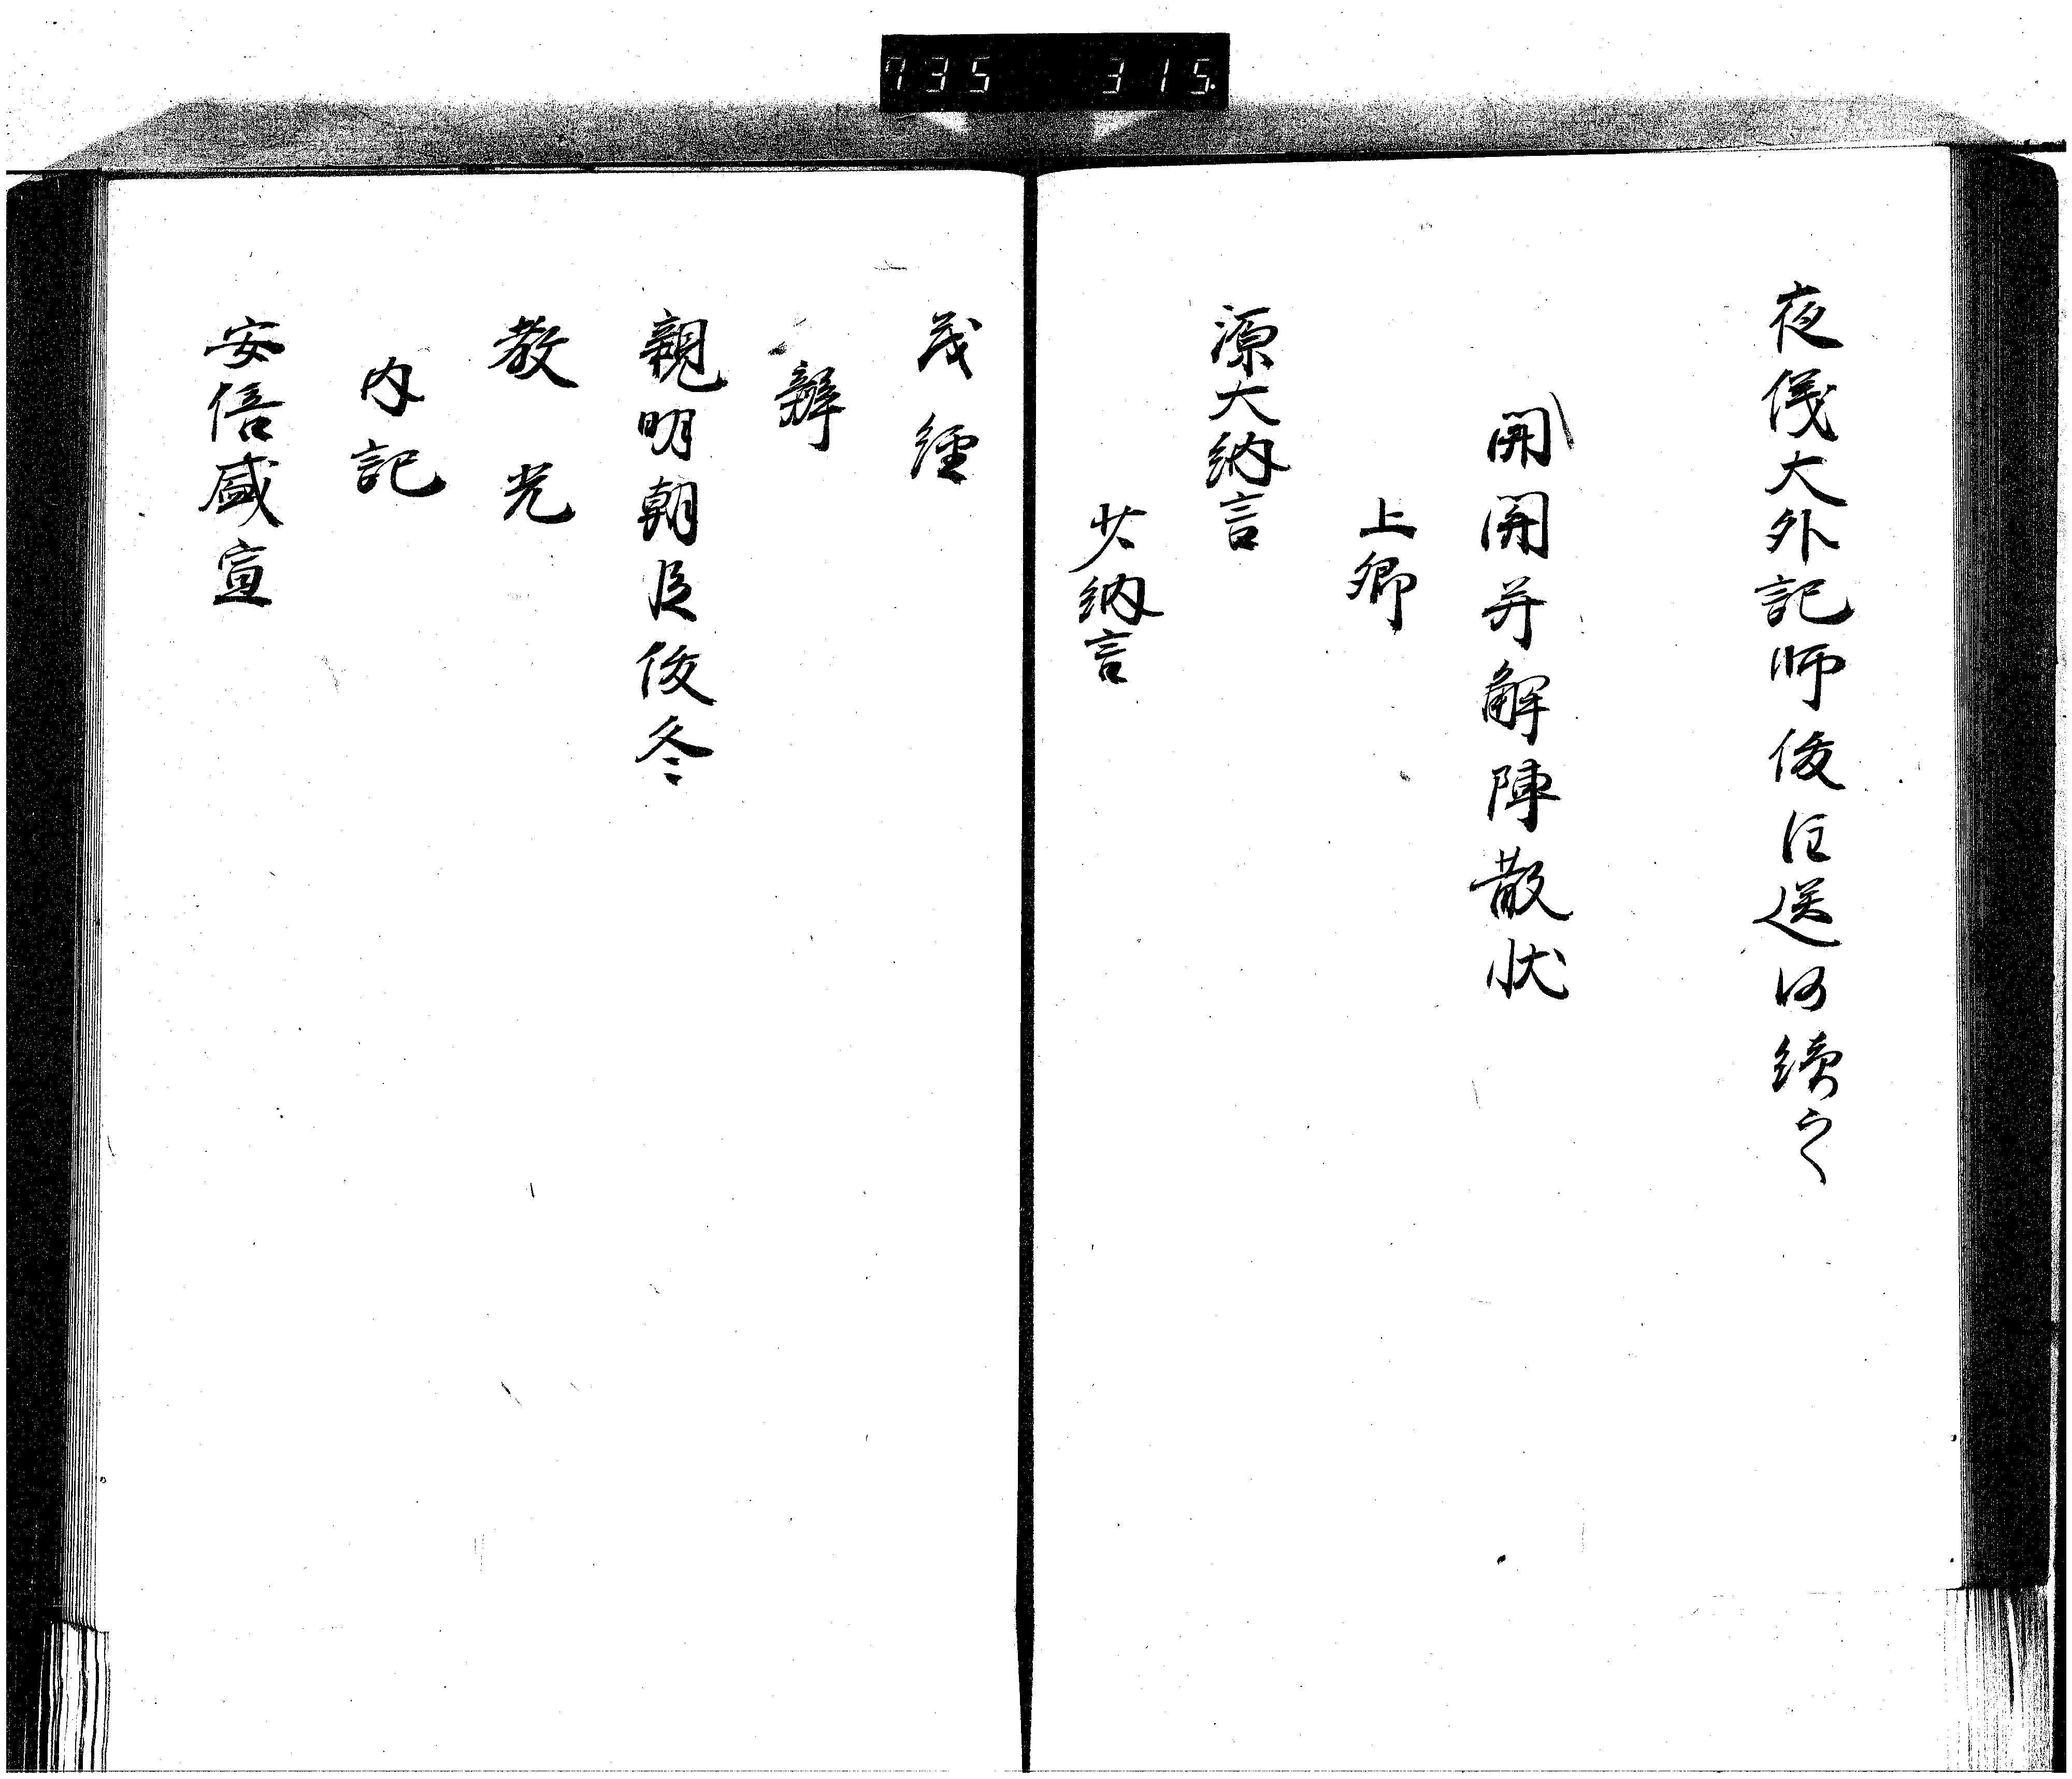 735 315
夜儀大外記師俊注送仍續之
開開并解陣散状
上卿
源大納言
少納言
茂經
辨
親明朝臣俊冬
教光
内記
安倍盛宣